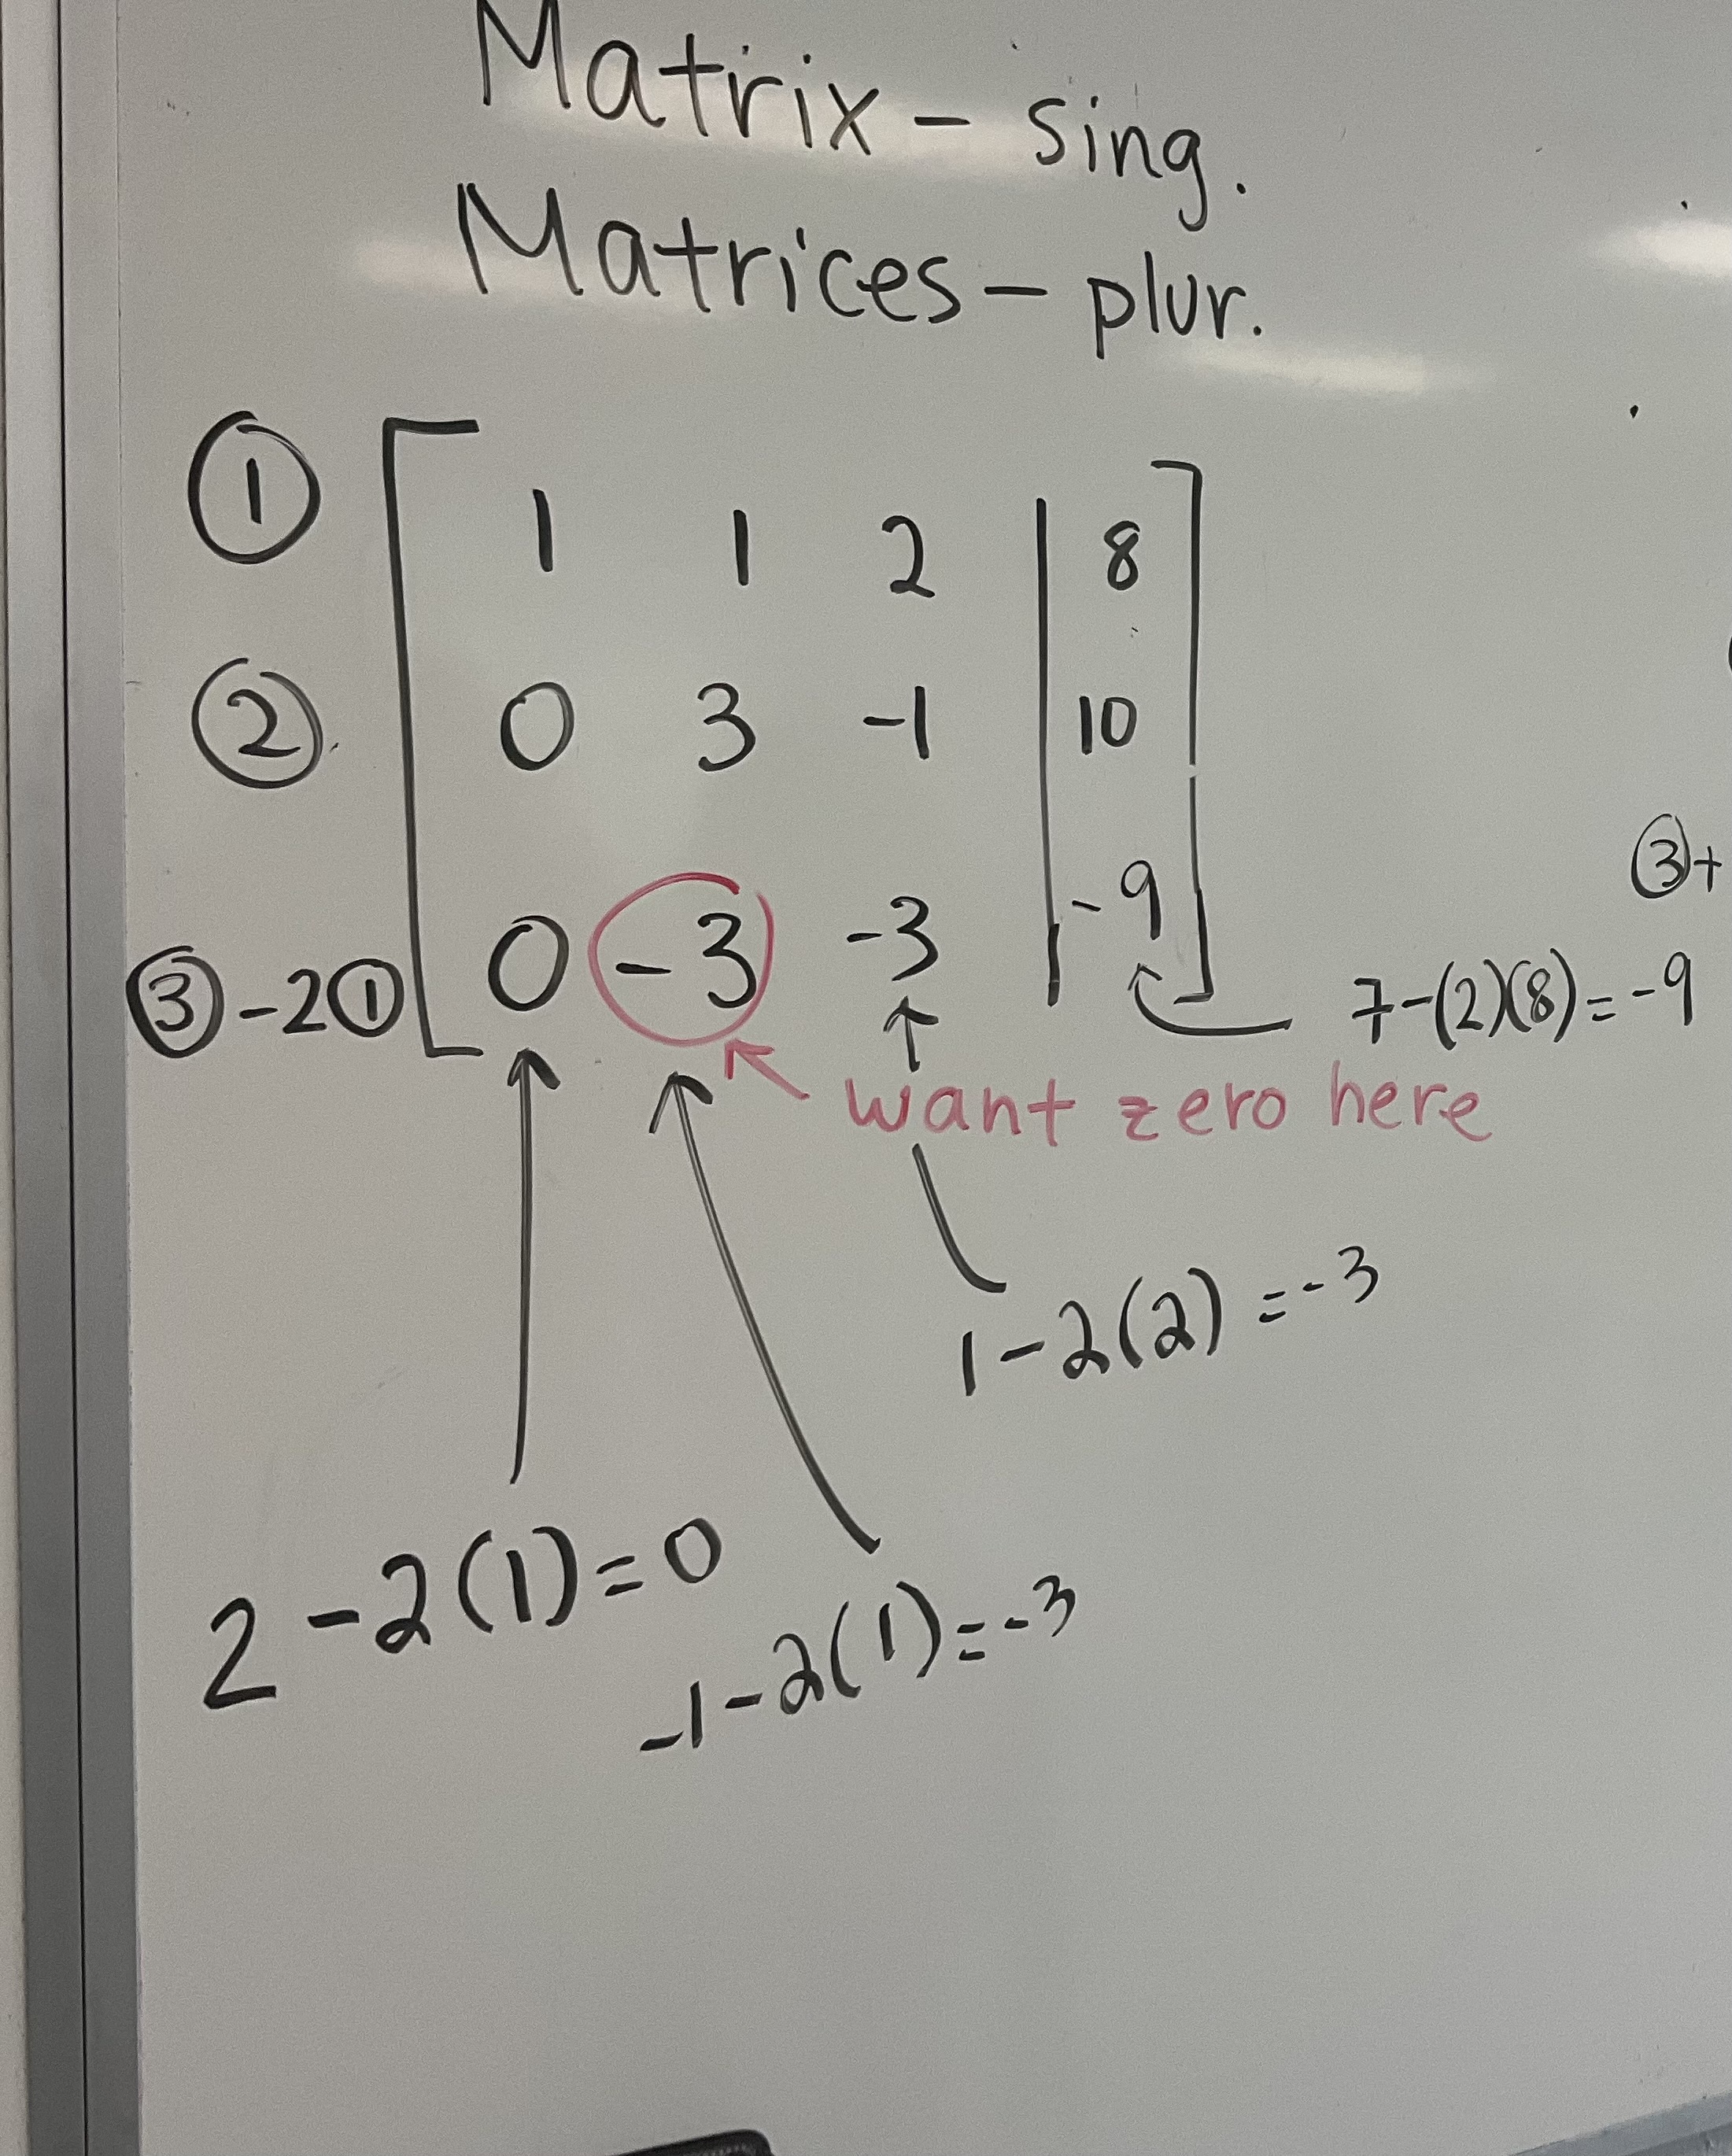 Matrix - sing.
Matrices - plur.
① 1 1 2 | 8
② 0 3 -1 | 10
③-2① 0 -3 -3 | -9
③+
7-(2)(8)=-9
want zero here
1-2(2)=-3
2-2(1)=0
-1-2(1)=-3